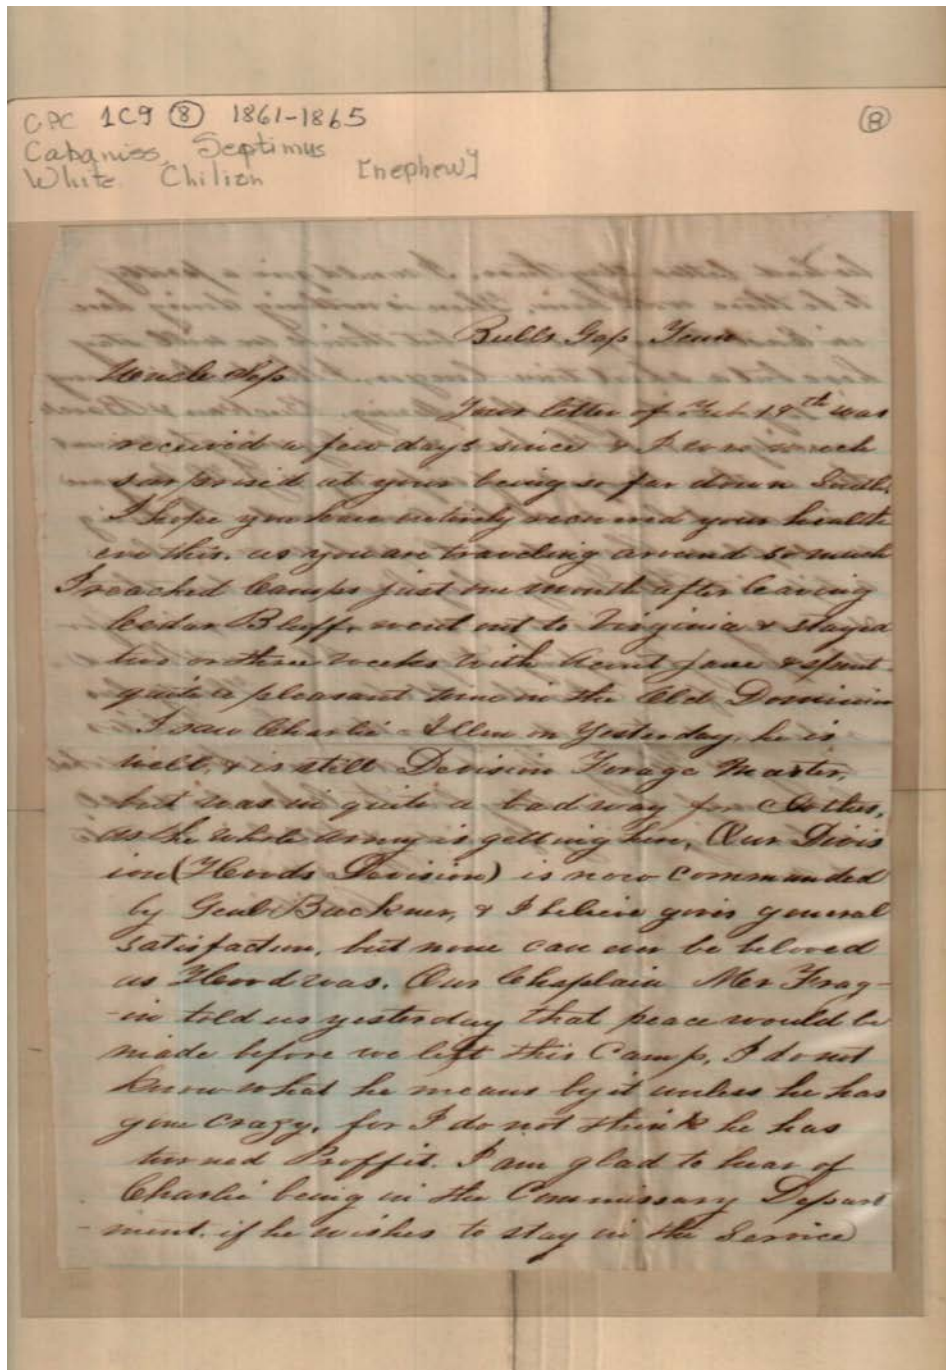 CPC 1C9 (8) 1861-1865
(8)
Cabaniss, Septimus
White Chilian [nephew]
Bulls Gap Tenn
Uncle Sep
Your letter of Feb 19th was
received a few days since & I was much
surprised at your being so far down South,
I hope you have entirely recovered your health
ere this. as you are traveling around so much
I reached Camps just one month after leaving
Cedar Bluff, went out to Virginia & stayed
two or three weeks with Aunt Jane & spent
quite a pleasant time in the Old Dominion
I saw Charlie Allen on Yesterday, he is
well, & is still Devision Forage Master,
but was in quite a bad way for Clothes,
as the whole army is getting here, Our Divis
ion (Hoods Devision) is now Commanded
by Genl Buckner, & I believe gives general
satisfaction, but none can ever be beloved
as Hood was. Our Chaplain Mr
-in told us yesterday that peace would be
made before we left this Camp, I do not
know what he means by it unless he has
gone crazy, for I do not think he has
turned Proffit. I am glad to hear of
Charlie being in the Commissary Depart
-ment. if he wishes to stay in the Service